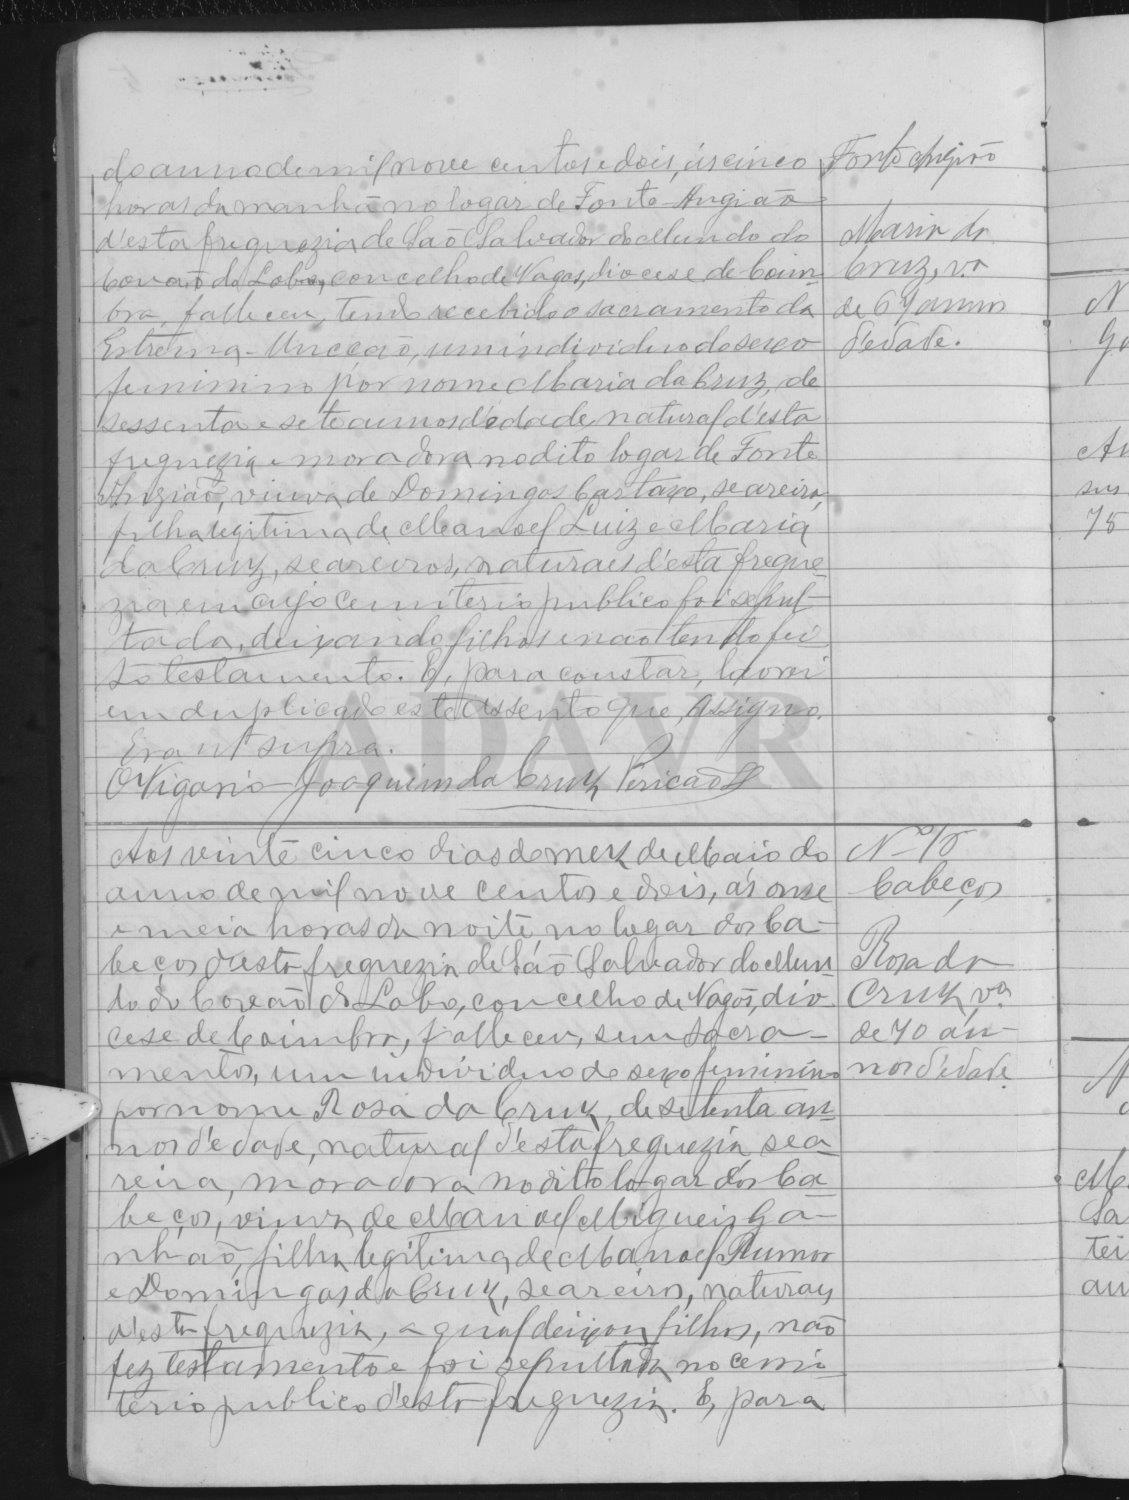 do anno de mil nove centos e dois, ás cinco
horas da manhã no logar de Fonte-Angião
d'esta freguezia de São Salvador do Mundo do
Covão do Lobo, concelho de Vagos, diocese de Coim-
bra, falleceu, tendo recebido o sacramento da
Extrema-Uncção, um individuo do sexo
feminino por nome Maria da Cruz, de
sessenta e sete annos d'edade, natural d'esta
freguezia e moradora no dito logar de Fonte
Angião, viuva de Domingos Cartaxo, seareira,
filha legitima de Manoel Luiz e Maria
da Cruz, seareiros, naturaes d'esta fregue-
zia em cujo cemiterio publico foi sepul-
tada, deixando filhos e não tendo fei
to testamento. E, para constar, lavrei
em duplicado este assento que assigno.
Era ut supra.
O Vigario Joaquim da Cruz Pericão
Fonte Angião
Maria da
Cruz, v.a
de 67 annos
d'edade.
Aos vinte cinco dias do mez de Maio do
anno de mil nove centos e dois, ás onse
e meia horas da noite no logar dos Ca-
beços d'esta freguezia de São Salvador do Mun-
do do Covão do Lobo, concelho de Vagos, dio
cese de Coimbra, falleceu, sem sacra-
mentos, um individuo do sexo feminino
por nome Rosa da Cruz, de setenta an-
nos d'edade, natural d'esta freguezia, sea-
reira, moradora no dito logar dos Ca-
beços, viuva de Manoel Migueis Ga-
nhão, filha legitima de Manoel Rumor
e Domingas da Cruz, seareiros, naturaes
d'esta freguezia, a qual deixou filhos, não
fez testamento e foi sepultada no cemi-
terio publico d'esta freguezia. E, para
Nº 18
Cabeços
Rosa da
Cruz, v.a
de 70 an-
nos d'edade.
N
An
sus
75
N
Ma
tei
an
ADAVR